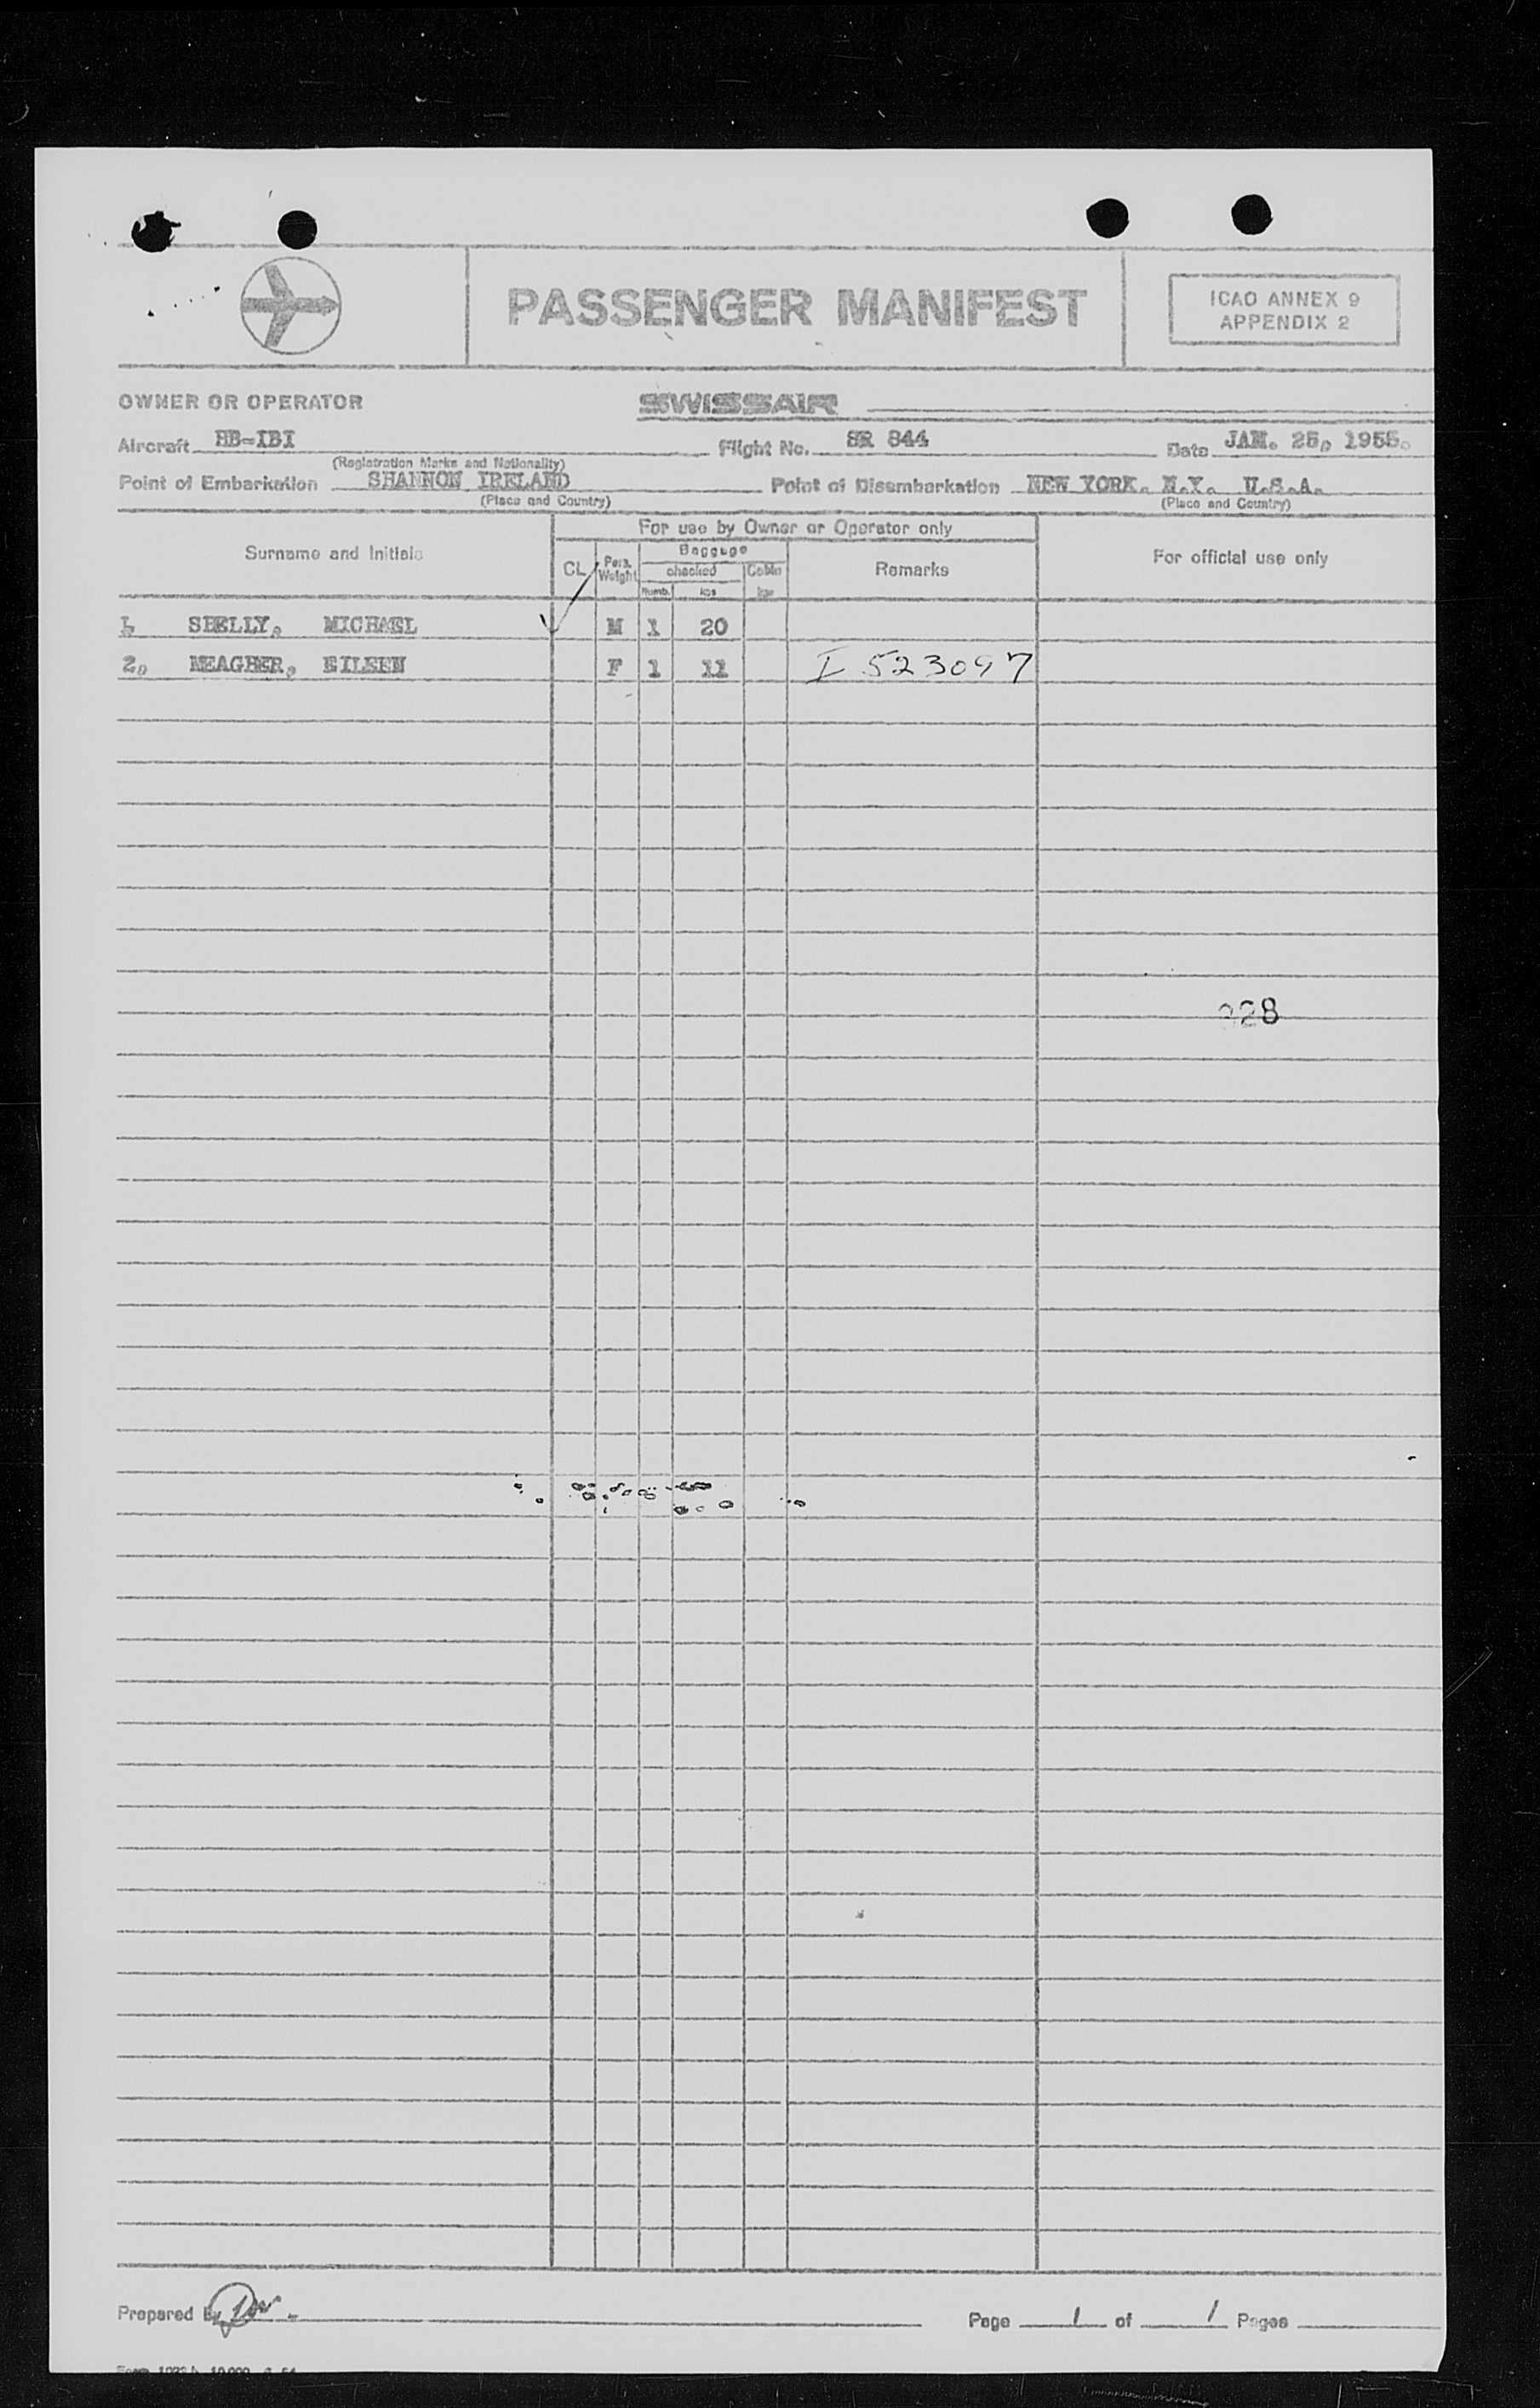 PASSENGER MANIFEST
ICAO ANNEX 9
APPENDIX 2
OWNER OR OPERATOR SWISSAIR
Aircraft HB-IBI Flight No. SR 844 Date JAN. 25, 1955.
(Registration Marks and Nationality)
Point of Embarkation SHANNON IRELAND Point of Disembarkation NEW YORK. N.Y. U.S.A.
(Place and Country) (Place and Country)
Surname and Initials
For use by Owner or Operator only
For official use only
CL
Pers. Weight
Baggage
checked
Cabin
Numb.
kgs
kgs
Remarks
1. SHELLY, MICHAEL M 1 20
2, MEAGHER, EILEEN F 1 11 I 523097
328
Prepared By
Page 1 of 1 Pages